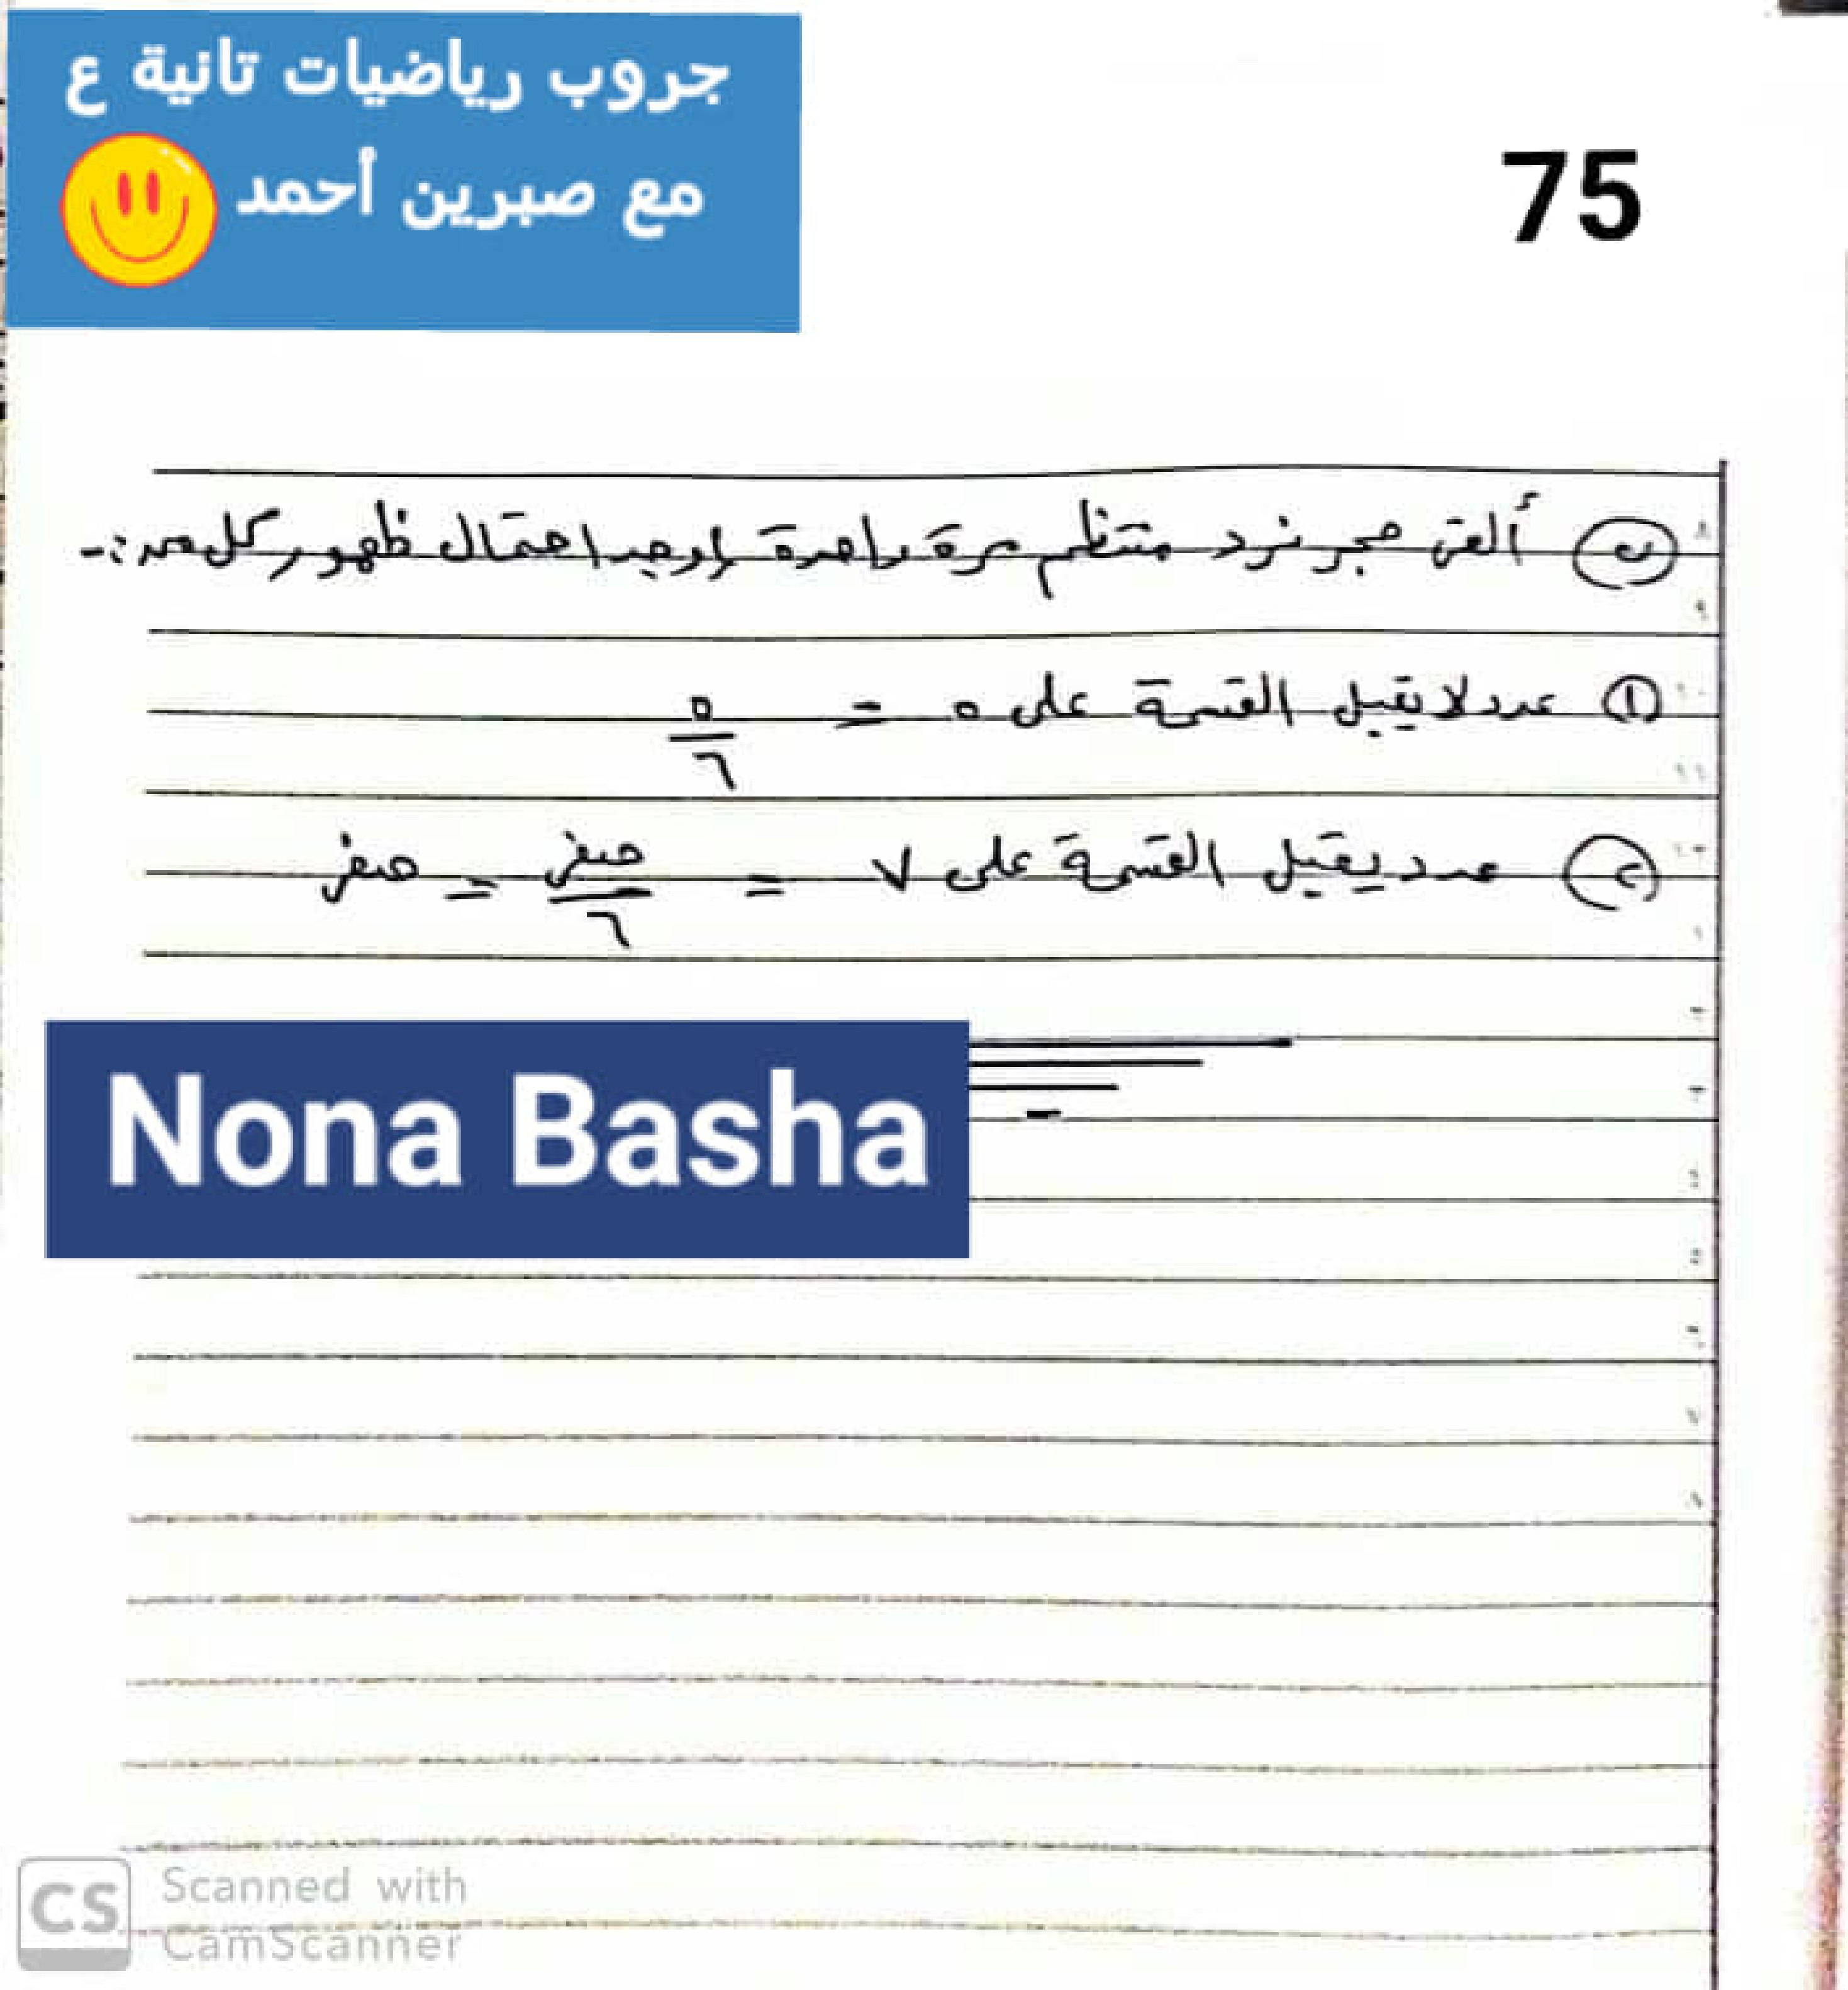 جروب رياضيات تانية ع
مع صبرين أحمد
75
ب ألقى حجر نرد منتظم مرة واحدة أوجد احتمال ظهور كل من :-
١ عدد لا يقبل القسمة على ٥ = ٥/٦
٢ عدد يقبل القسمة على ٧ = صفر/٦ = صفر
Nona Basha
CS Scanned with
CamScanner